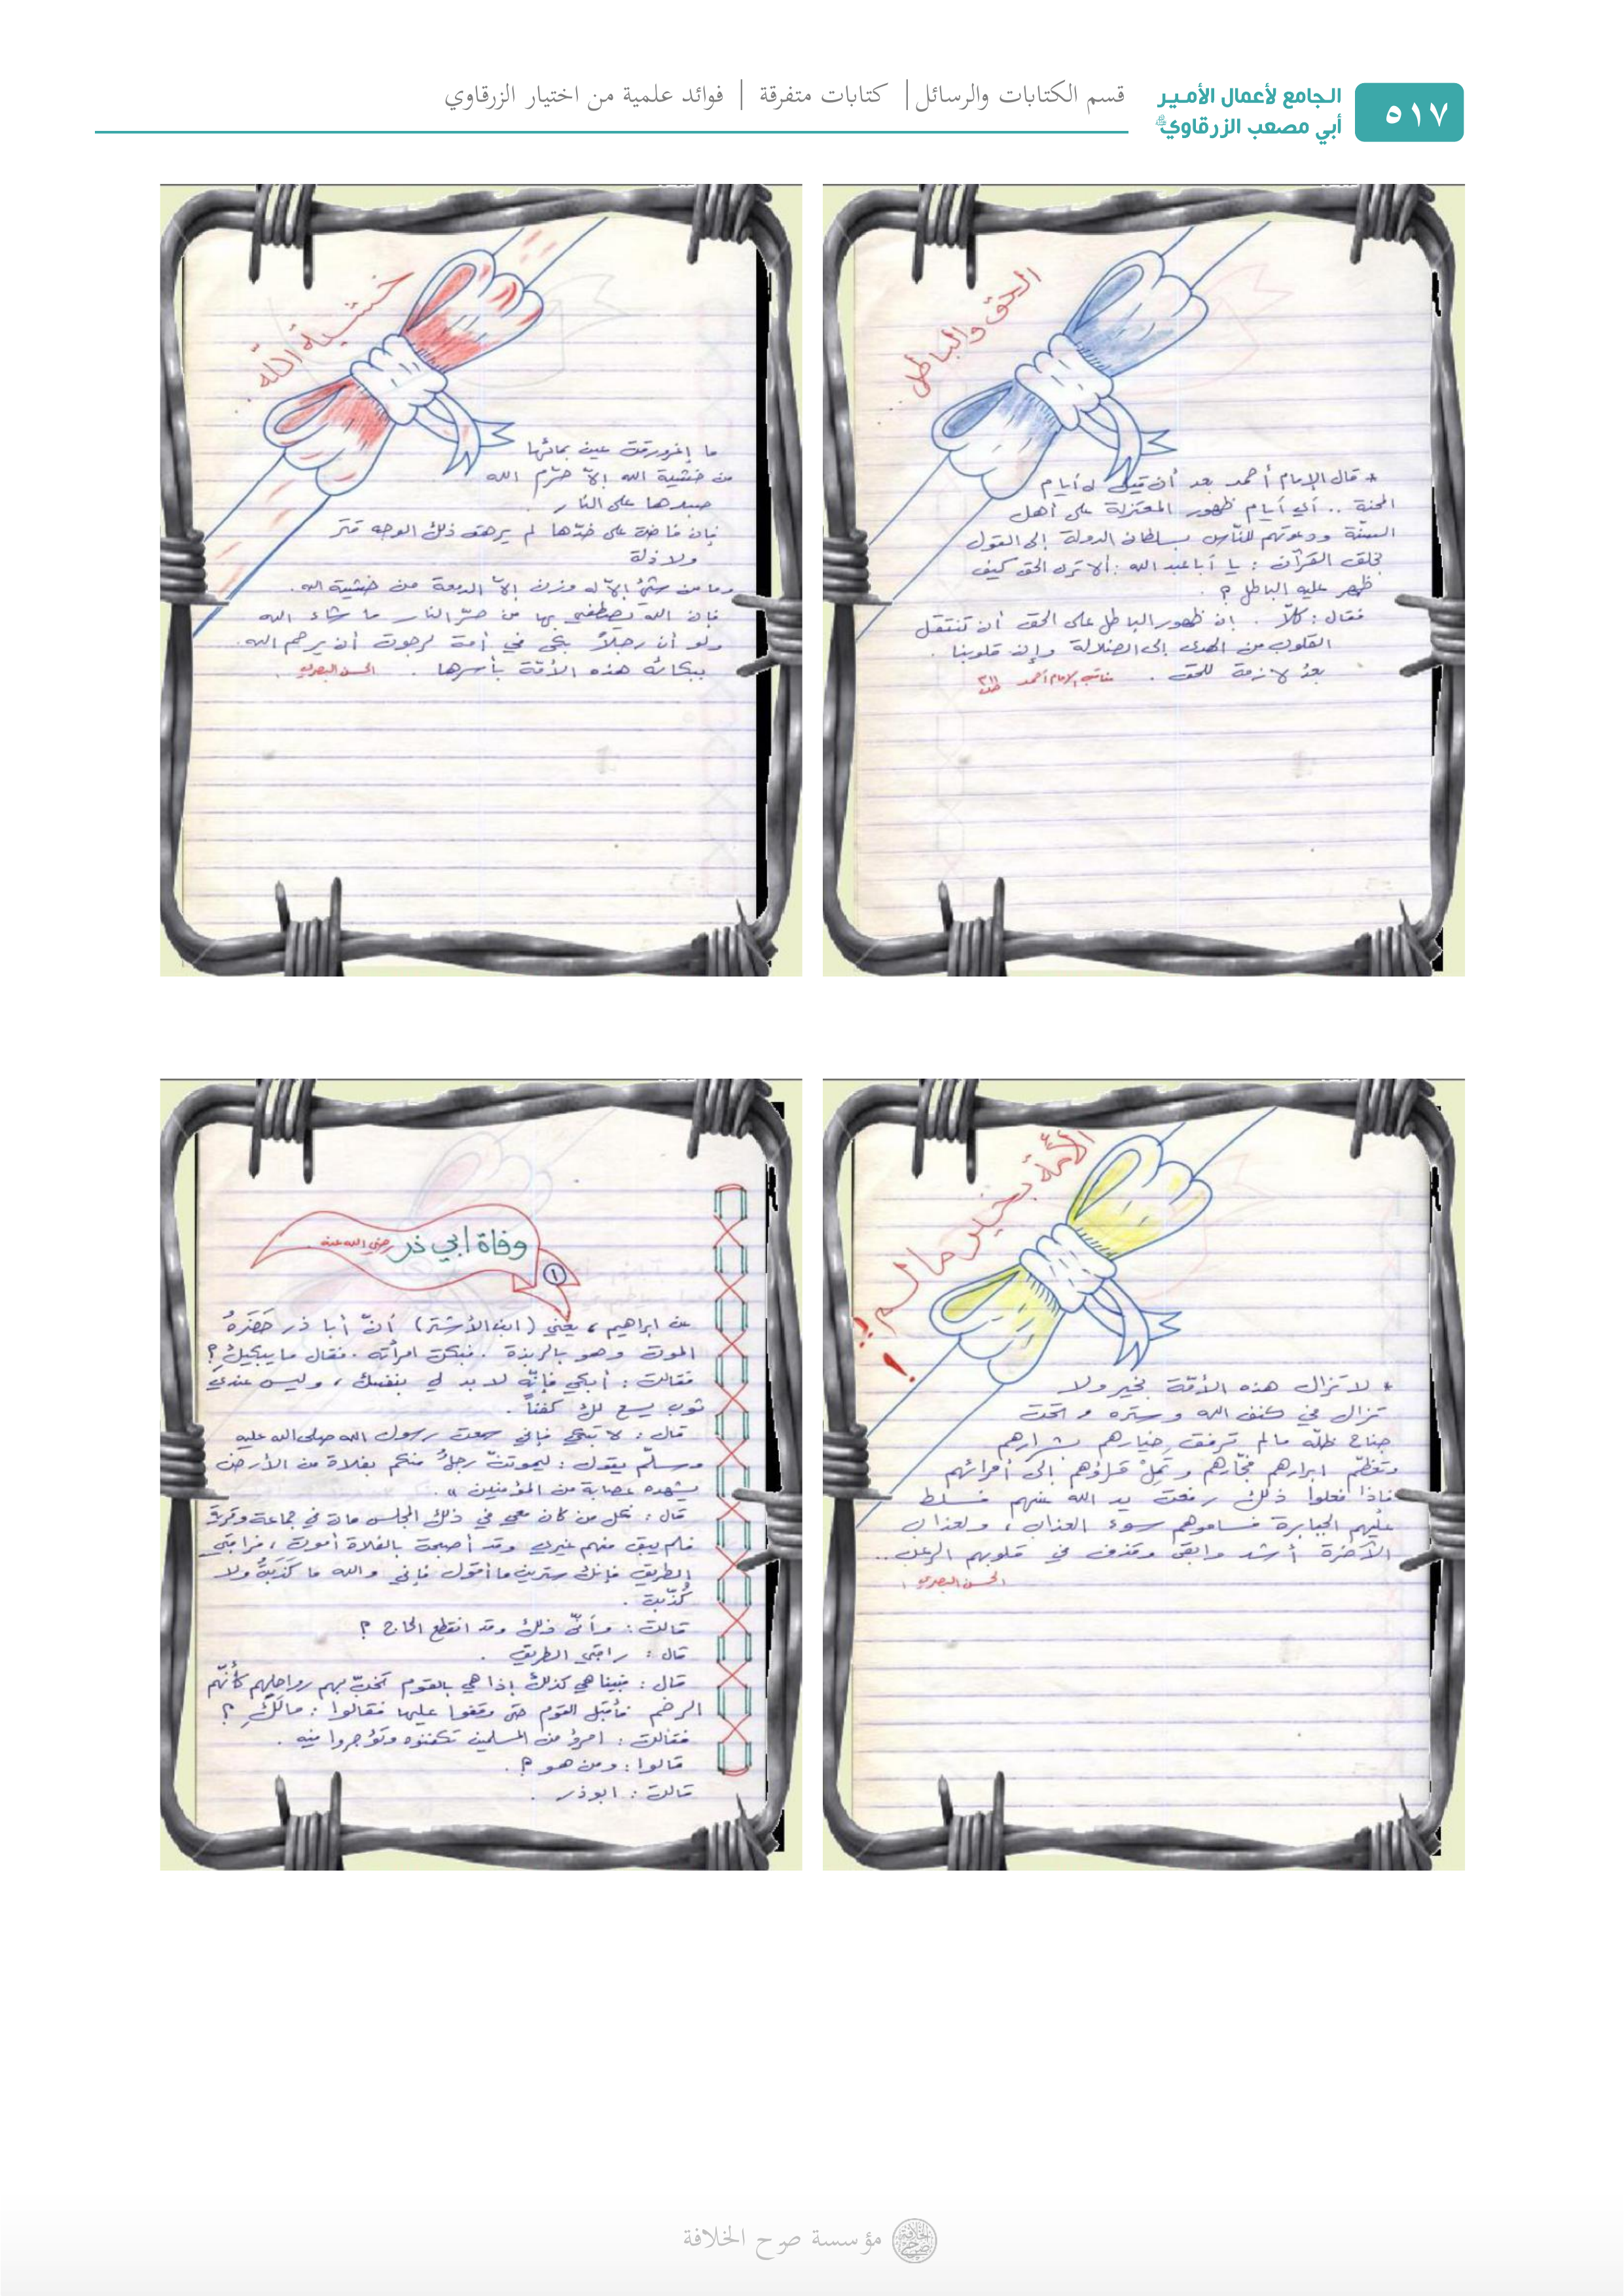 ٥١٧
الجامع لأعمال الأمير
أبي مصعب الزرقاوي
قسم الكتابات والرسائل | كتابات متفرقة | فوائد علمية من اختيار الزرقاوي
الحق والباطل..
* قال الإمام أحمد بعد أن قيل له أيام
المحنة .. أي أيام ظهور المعتزلة على أهل
السنّة ودعوتهم للنّاس بسلطان الدولة إلى القول
بخلق القرآن : يا أبا عبد الله : ألا ترى الحق كيف
ظهر عليه الباطل ؟ .
فقال : كلّا . إن ظهور الباطل على الحق أن تنتقل
القلوب من الهدى إلى الضلالة وإن قلوبنا
بعدُ لازمة للحق . مناقب الإمام أحمد
خشية الله..
ما إغرورقت عين بمائها
من خشية الله إلاّ حرّم الله
جسدها على النار .
فإن فاضت على خدّها لم يرهق ذلك الوجه قتر
ولا ذلة
وما من شيءٍ إلاّ له وزن إلاّ الدمعة من خشية الله .
فإن الله يطفي بها من حرّ النار ما شاء الله
ولو أن رجلاً بكى في أمة لرجوت أن يرحم الله
ببكائه هذه الأمّة بأسرها . الحسن البصري .
الأمّة بخير ما لم ؟!
* لا تزال هذه الأمّة بخير ولا
تزال في كنف الله وستره وتحت
جناح ظلّه مالم ترفق خيارهم بشرارهم
وتعظّم ابرارهم فجّارهم وتمِلْ قراؤهم إلى أمرائهم
فاذا فعلوا ذلك رفعت يد الله عنهم فسلط
عليهم الجبابرة فساموهم سوء العذاب ، ولعذاب
الآخرة أشد وابقى وقذف في قلوبهم الرعب ..
الحسن البصري .
وفاة ابي ذر رضي الله عنه
١
عن ابراهيم ، يعني (ابن الأشتر) أنّ أبا ذر حَضَرَهُ
الموت وهو بالربذة . فبكت امرأته . فقال ما يبكيكِ ؟
فقالت : أبكي فإنّه لا بد لي بنفسك ، وليس عندي
ثوب يسع لك كفناً .
قال : لا تبكي فإني سمعت رسول الله صلى الله عليه
وسلّم يقول : ليموتنّ رجلٌ منكم بفلاة من الأرض
يشهده عصابة من المؤمنين » .
قال : فكل من كان معي في ذلك المجلس مات في جماعة وقرية
فلم يبق منهم غيري وقد أصبحت بالفلاة أموت ، فراقبي
الطريق فإنك سترين ما أقول فإني والله ما كَذَبتُ ولا
كُذّبت .
قالت : وأنّى ذلك وقد انقطع الحاج ؟
قال : راقبي الطريق .
قال : فبينا هي كذلك إذا هي بالقوم تخبّ بهم رواحلهم كأنّهم
الرخم فأقبل القوم حتى وقفوا عليها فقالوا : مالَكِ ؟
فقالت : امرؤ من المسلمين تكفنوه وتؤجروا فيه .
قالوا : ومن هو ؟ .
قالت : ابو ذر .
مؤسسة صرح الخلافة